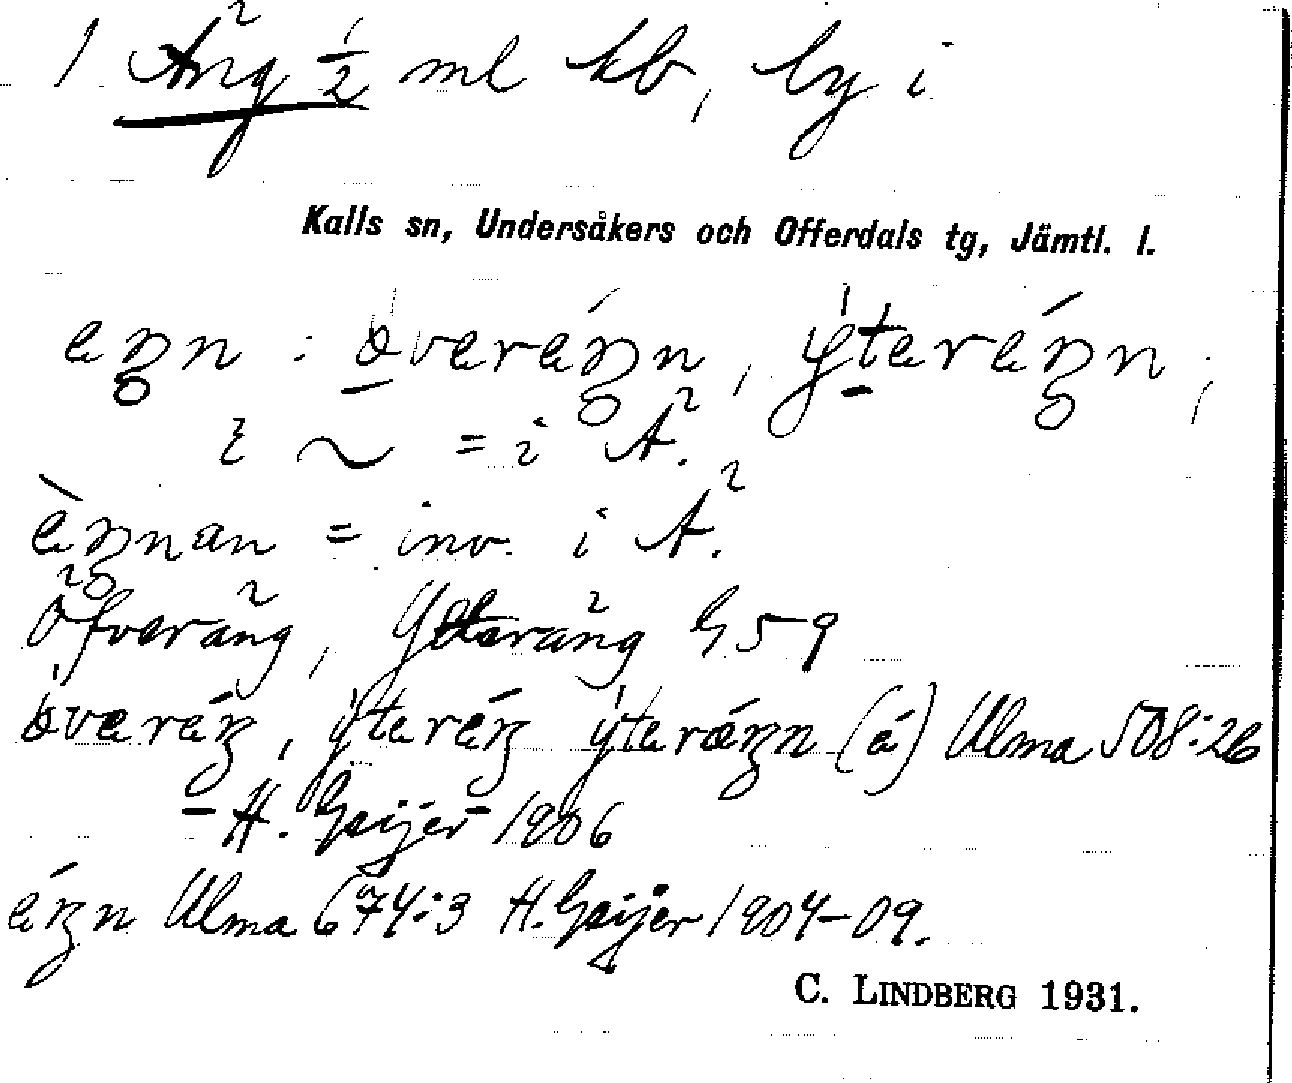 1 Äng ½ ml kb, by i
Kalls sn, Undersåkers och Offerdals tg, Jämtl. l.
eŋn : överéŋn, ýteréŋn,
i ~ = i Ä.
èŋnan = inv. i Ä.
Öfveräng, Ytteräng G 59
överéŋ, ýteréŋ ýteræ̀ŋn (á) Ulma 508:26
- H. Geijer 1906
éŋn Ulma 674:3 H. Geijer 1904-09.
C. LINDBERG 1931.